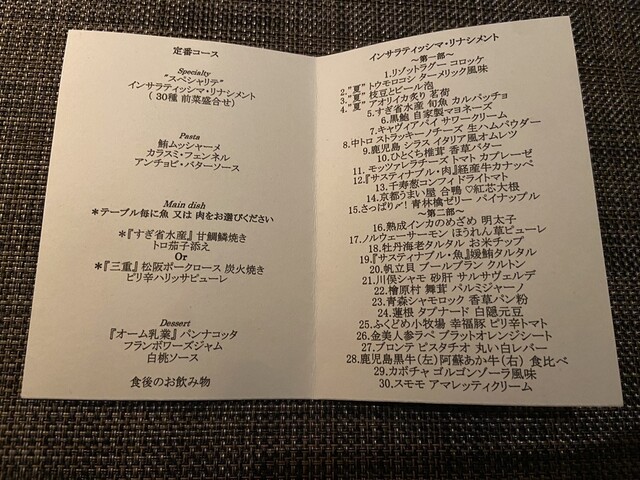 定番コース
Specialty
"スペシャリテ"
インサラティッシマ・リナシメント
( 30種 前菜盛合せ)
Pasta
鮪ムッシャーメ
カラスミ・フェンネル
アンチョビ・バターソース
Main dish
＊テーブル毎に魚 又は 肉をお選びください
＊『すぎ省水産』甘鯛鱗焼き
トロ茄子添え
Or
＊『三重』松阪ポークロース 炭火焼き
ピリ辛ハリッサピューレ
Dessert
『オーム乳業』パンナコッタ
フランボワーズジャム
白桃ソース
食後のお飲み物
インサラティッシマ・リナシメント
～第一部～
1.リゾットラグー コロッケ
2."夏" トウモロコシ ターメリック風味
3."夏" 枝豆とビール泡
4."夏" アオリイカ炙り 茗荷
5.すぎ省水産 旬魚 カルパッチョ
6.黒鮑 自家製マヨネーズ
7.キャヴィアパイ サワークリーム
8.中トロ ストラッキーノチーズ 生ハムパウダー
9.鹿児島 シラス イタリア風オムレツ
10.ひとくち椎茸 香草バター
11. モッツァレラチーズ トマト カプレーゼ
12.『サスティナブル・肉』経産牛カナッペ
13.千寿葱コンフィ ドライトマト
14.京都うまい屋 合鴨 ♡紅芯大根
15.さっぱり〆! 青林檎ゼリー パイナップル
～第二部～
16.熟成インカのめざめ 明太子
17.ノルウェーサーモン ほうれん草ピューレ
18.牡丹海老タルタル お米チップ
19.『サスティナブル・魚』媛鮪タルタル
20.帆立貝 ブールブラン クルトン
21.川俣シャモ 砂肝 サルサヴェルデ
22.檜原村 舞茸 パルミジャーノ
23.青森シャモロック 香草パン粉
24.蓮根 タプナード 白隠元豆
25.ふくどめ小牧場 幸福豚 ピリ辛トマト
26.金美人参ラペ ブラットオレンジシート
27.ブロンテ ピスタチオ 丸い白レバー
28.鹿児島黒牛(左) 阿蘇あか牛(右) 食比べ
29.カボチャ ゴルゴンゾーラ風味
30.スモモ アマレッティクリーム